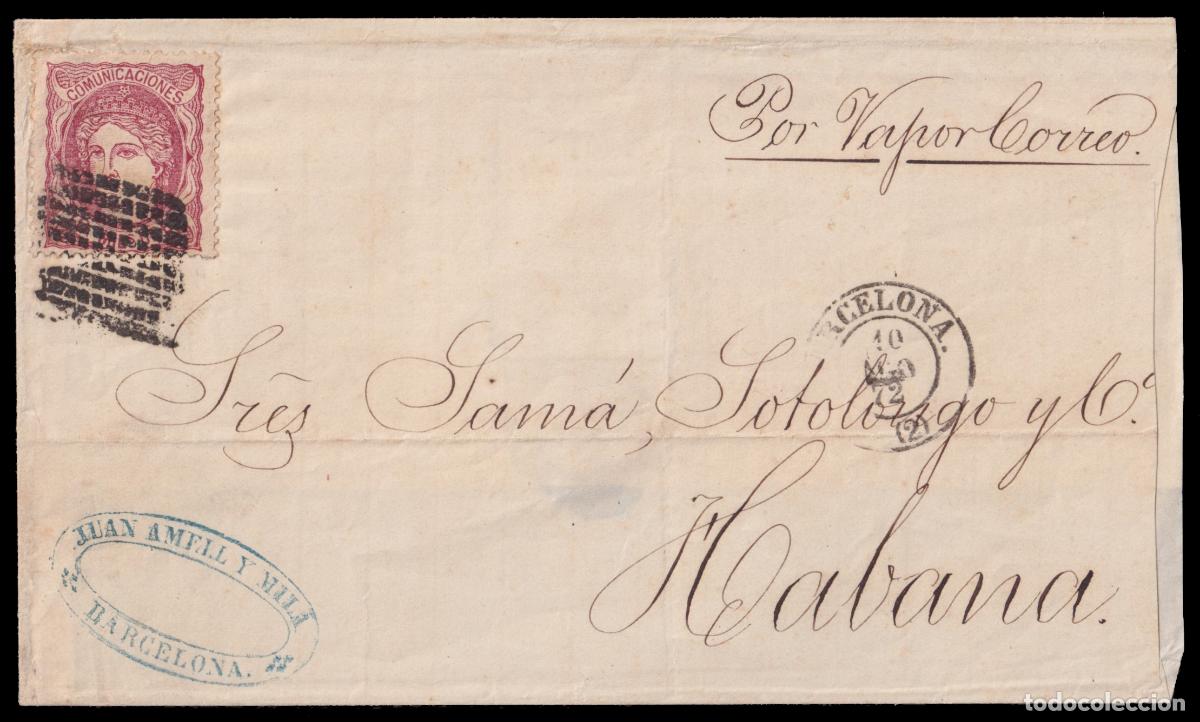 COMUNICACIONES
Por Vapor Correo.
RCELONA.
10
72
(2)
Sres Samá, Sotolongo y Cª.
Habana.
JUAN AMELL Y MILÁ
BARCELONA.
todocoleccion